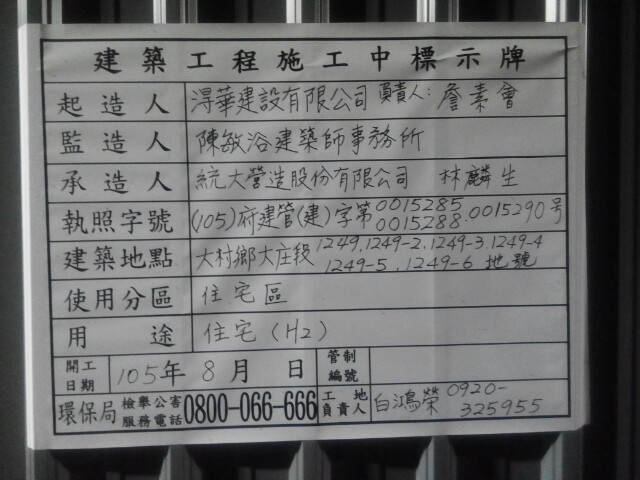 建築工程施工中標示牌
起造人 淂華建設有限公司 負責人: 詹素會
監造人 陳敏浴建築師事務所
承造人 統大營造股份有限公司 林麟生
執照字號 (105)府建管(建)字第0015285 0015288.0015290號
建築地點 大村鄉大庄段1249,1249-2,1249-3,1249-4
1249-5,1249-6 地號
使用分區 住宅區
用途 住宅(H2)
開工日期 105年 8月 日 管制編號
環保局 檢舉公害服務電話 0800-066-666 工地負責人 白鴻榮 0920-325955